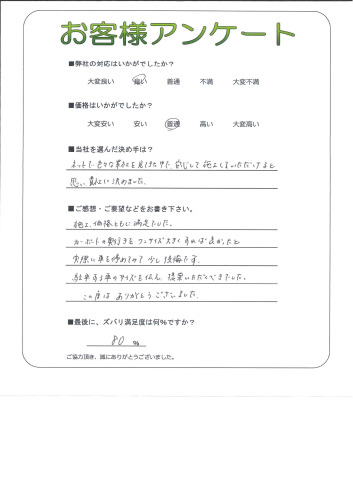 お客様アンケート
■弊社の対応はいかがでしたか？
大変良い 良い 普通 不満 大変不満
■価格はいかがでしたか？
大変安い 安い 普通 高い 大変高い
■当社を選んだ決め手は？
ネットで色々な業社を見ましたが、安心して施工していただけると
思い、貴社に決めました。
■ご感想・ご要望などをお書き下さい。
施工、価格ともに満足でした。
カーポートの奥行きをワンサイズ大きくすれば良かったと
実際に車を停めてみて少し後悔です。
駐車する車のサイズを伝え、提案いただくべきでした。
この度はありがとうございました。
■最後に、ズバリ満足度は何％ですか？
80 ％
ご協力頂き、誠にありがとうございました。